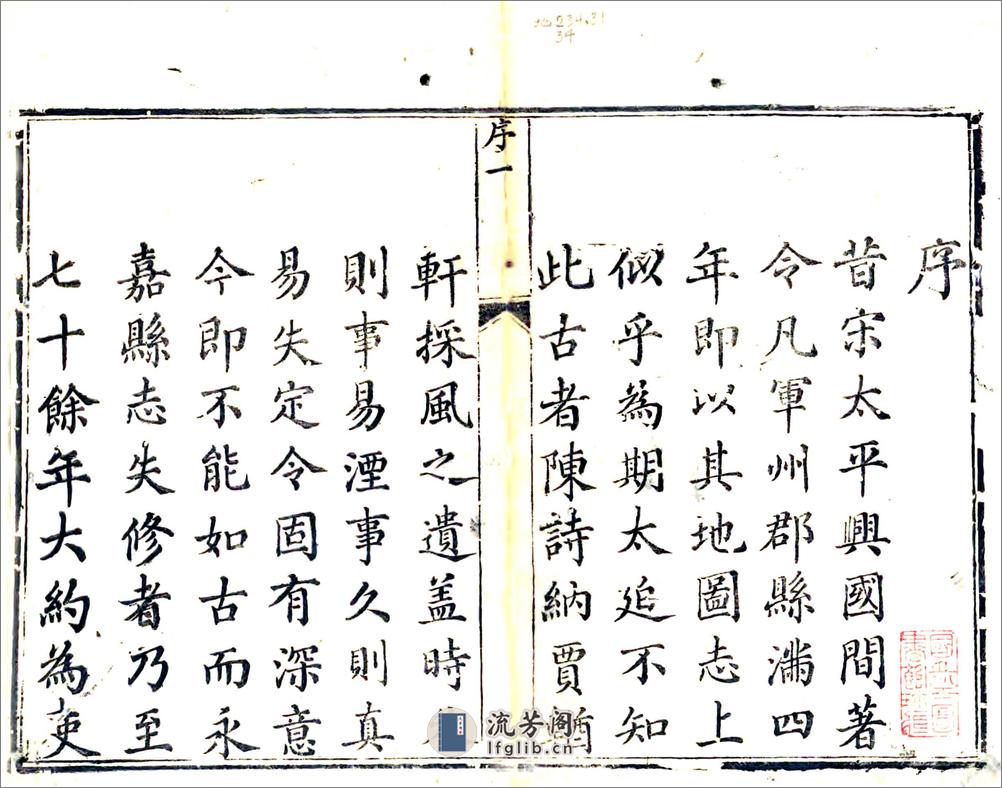 地 234.31
34
序
昔宋太平興國間著
令凡軍州郡縣滿四
年即以其地圖志上
似乎為期太延不知
此古者陳詩納賈
序一
軒採風之遺蓋時
則事易湮事久則真
易失定令固有深意
今即不能如古而永
嘉縣志失修者乃至
七十餘年大約為吏
流芳阁
lfglib.cn